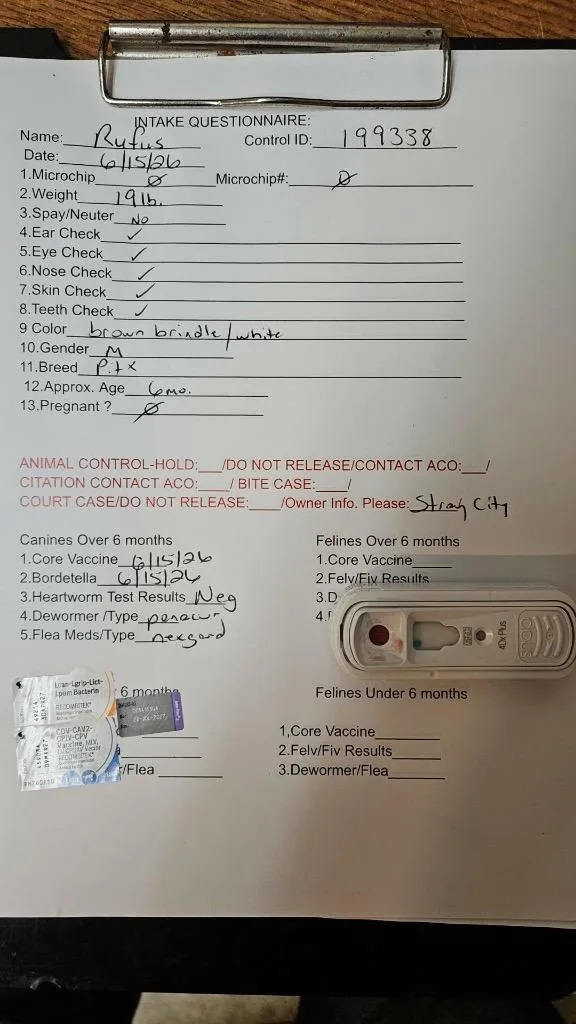 INTAKE QUESTIONNAIRE:
Name: Rufus Control ID: 199338
Date: 6/15/26
1.Microchip Ø Microchip#: Ø
2.Weight 19lb.
3.Spay/Neuter No
4.Ear Check ✓
5.Eye Check ✓
6.Nose Check ✓
7.Skin Check ✓
8.Teeth Check ✓
9 Color brown brindle/white
10.Gender M
11.Breed Pit x
12.Approx. Age 6mo.
13.Pregnant ? Ø
ANIMAL CONTROL-HOLD:___/DO NOT RELEASE/CONTACT ACO:___/
CITATION CONTACT ACO:____/ BITE CASE:____/
COURT CASE/DO NOT RELEASE:____/Owner Info. Please: Stray City
Canines Over 6 months
1.Core Vaccine 6/15/26
2.Bordetella 6/15/26
3.Heartworm Test Results Neg
4.Dewormer /Type panacur
5.Flea Meds/Type nexgard
Felines Over 6 months
1.Core Vaccine
2.Felv/Fiv Results
3.D
4.
SNAP
4Dx Plus
6 months
/Flea
CDV-CAV2-
CPIV-CPV
Vaccine, MLV,
RECOMBITEK
Felines Under 6 months
1,Core Vaccine
2.Felv/Fiv Results
3.Dewormer/Flea